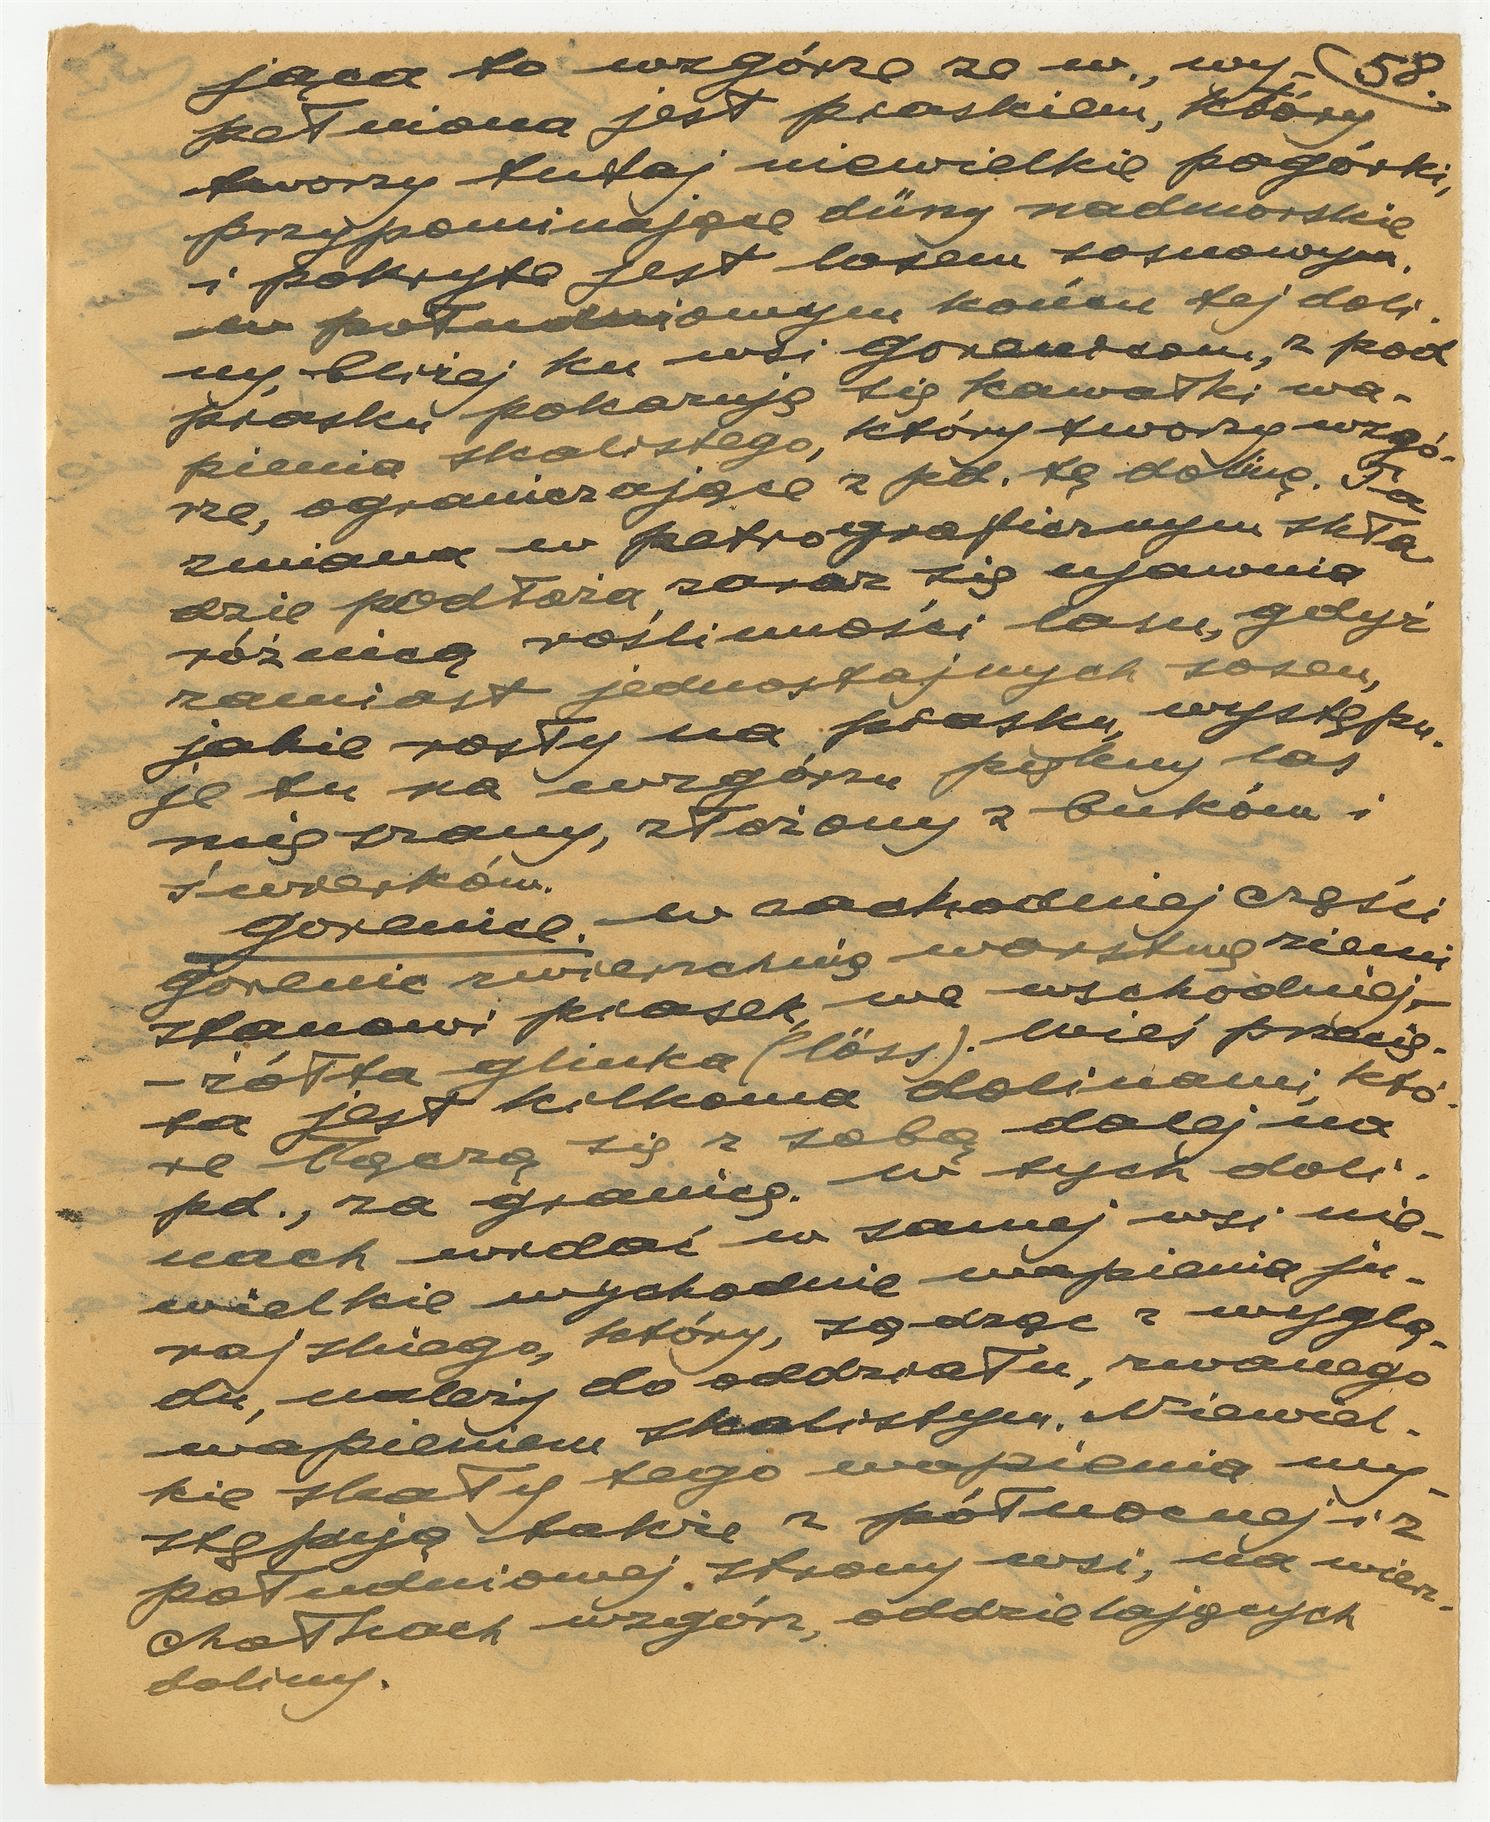 jąca to wzgórze ze w., wy- 58.
pełniona jest piaskiem, który
tworzy tutaj niewielkie pagórki,
przypominające düny nadmorskie
i pokryte jest lasem sosnowym.
w południowym końcu tej doli-
ny, bliżej ku wsi Gorenicom, z pod
piasku pokazują się kawałki wa-
pienia skalistego, który tworzy wzgó-
rze, ograniczające z pd. tę dolinę. Ta
zmiana w petrograficznym skła
dzie podłoża, zaraz się ujawnia
różnicą roślinności lasu, gdyż
zamiast jednostajnych sosen,
jakie rosły na piasku, występu-
je tu na wzgórzu piękny las
mięszany, złożony z buków i
świerków.
Gorenice. w zachodniej części
Gorenic zwierzchnią warstwę ziemi
stanowi piasek, we wschodniej,-
- żółta glinka (löss). Wieś przecię-
ta jest kilkoma dolinami, któ-
re łączą się z sobą dalej na
pd., za granicą. W tych doli-
nach widać w samej wsi nie-
wielkie wychodnie wapienia ju-
rajskiego, który, sądząc z wyglą-
du, należy do oddziału, zwanego
wapieniem skalistym. Niewiel-
kie skały tego wapienia wy-
stępują także z północnej i z
południowej strony wsi, na wierz-
chołkach wzgórz, oddzielających
doliny.